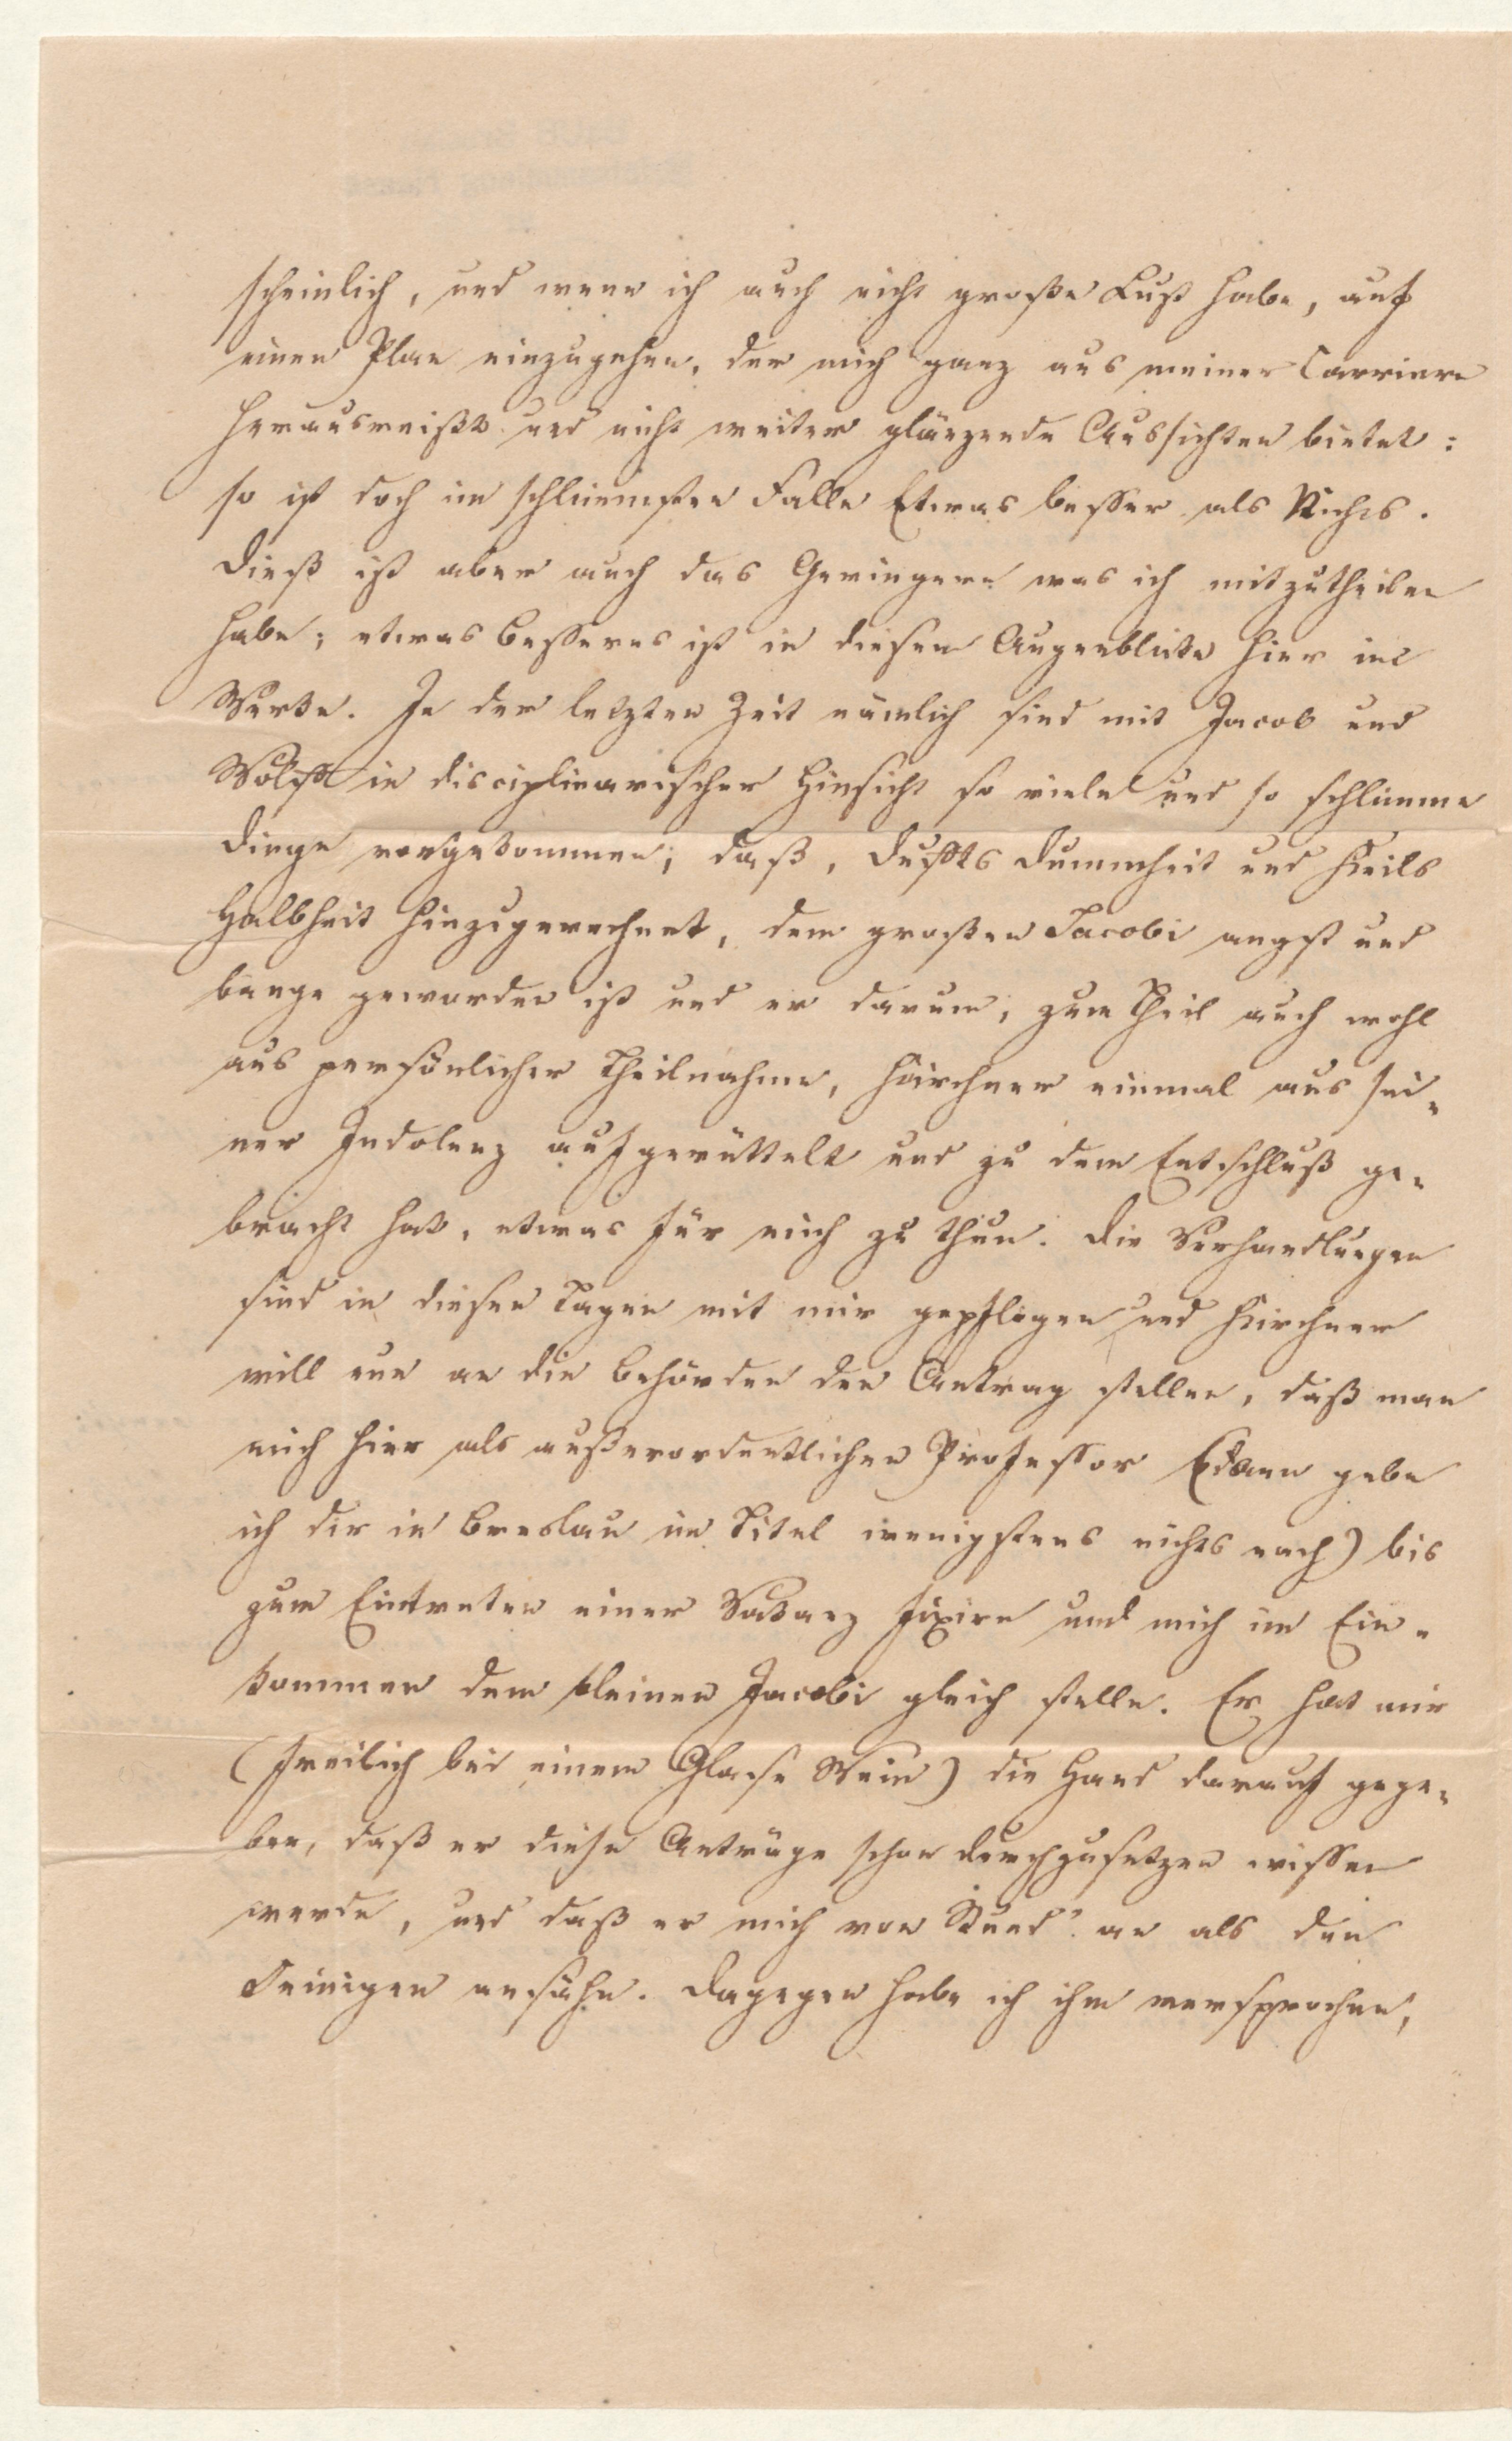 scheinlich, und wenn ich auch nicht große Lust habe, auf
einen Plan einzugehen, der mich ganz aus meiner Carriere
herausreißt und nicht weiter glänzende Aussichten bietet:
so ist doch im schlimmsten Falle Etwas besser als Nichts.
Dieß ist aber auch das Geringere was ich mitzutheilen
habe; etwas Besseres ist in diesem Augenblicke hier im
Werke. In der letzten Zeit nämlich sind mit Jacob und
Wolff in disciplinarischer Hinsicht so viele und so schlimme
Dinge vorgekommen, daß, Dummheit und Keils
Halbheit hinzugerechnet, dem großen Jacobi angst und
bange geworden ist und er darum, zum Theil auch wohl
aus persönlicher Theilnahme, Kirchner einmal aus sei-
ner Indolenz aufgerüttelt und zu dem Entschluß ge-
bracht hat, etwas für mich zu thun. Die Verhandlungen
sind in diesen Tagen mit mir gepflogen und Kirchner
will nun an die Behörden den Antrag stellen, daß man
mich hier als außerordentlichen Professor (dann gebe
ich dir in Breslau im Titel wenigstens nichts nach) bis
zum Eintreten einer Vakanz fixire und mich im Ein-
kommen dem kleinen Jacobi gleich stelle. Er hat mir
(freilich bei einem Glase Wein) die Hand darauf gege-
ben, daß er diese Anträge schon durchzusetzen wissen
werde, und daß er mich von Stund' an als den
Seinigen ansähe. Dagegen habe ich ihm versprochen,